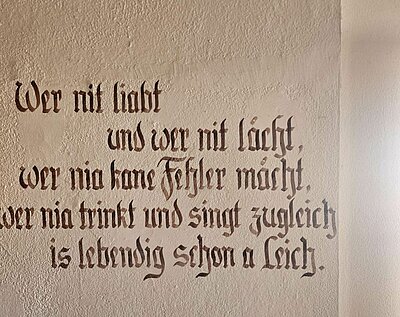 Wer nit liabt
und wer nit lácht,
wer nia kane Fehler mácht,
wer nia trinkt und singt zugleich
is lebendig schon a Leich.